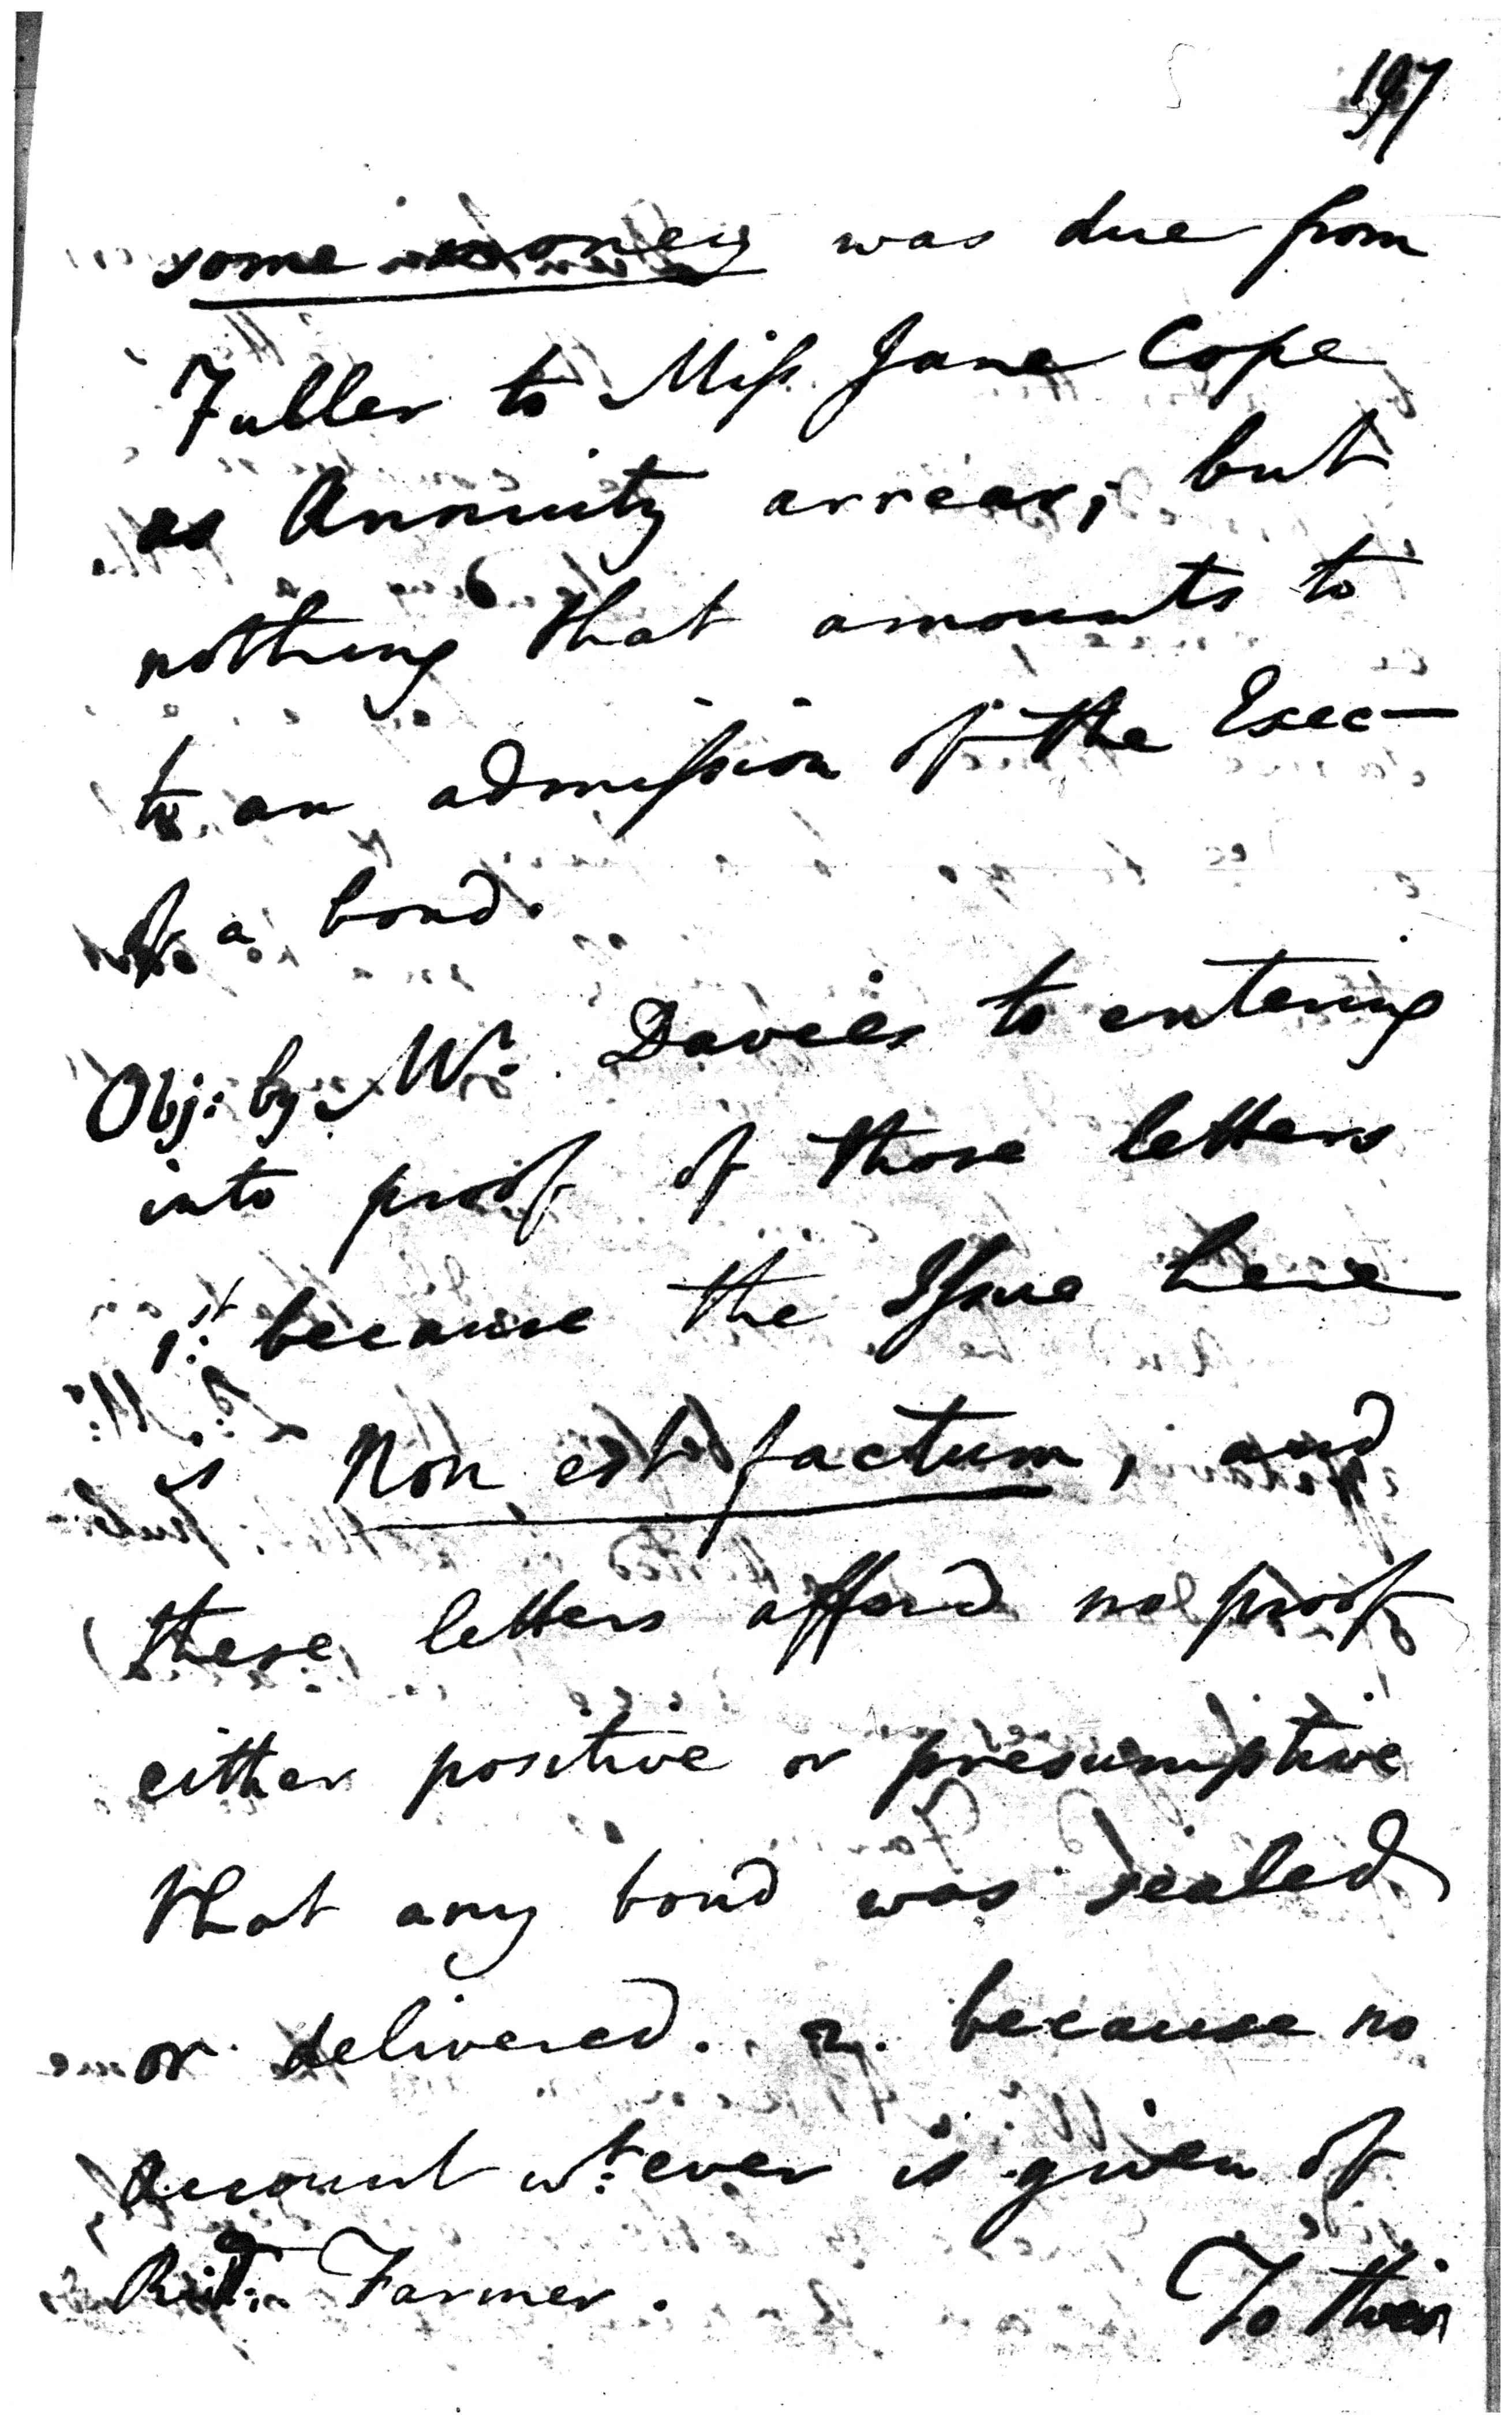 197
some money was due from
Fuller to Miss Jane Cope
as Annuity arrear; but
nothing that amounts to
to an admission of the Exec—
of a bond.
Obj: by Mr: Davies to entering
into proof of those letters
1st: because the Issue here
is Non est factum, and
these letters afford no proof
either positive or presumptive
that any bond was sealed
or delivered. 2. because no
account wt:ever is given of
Rd: Farmer. To this